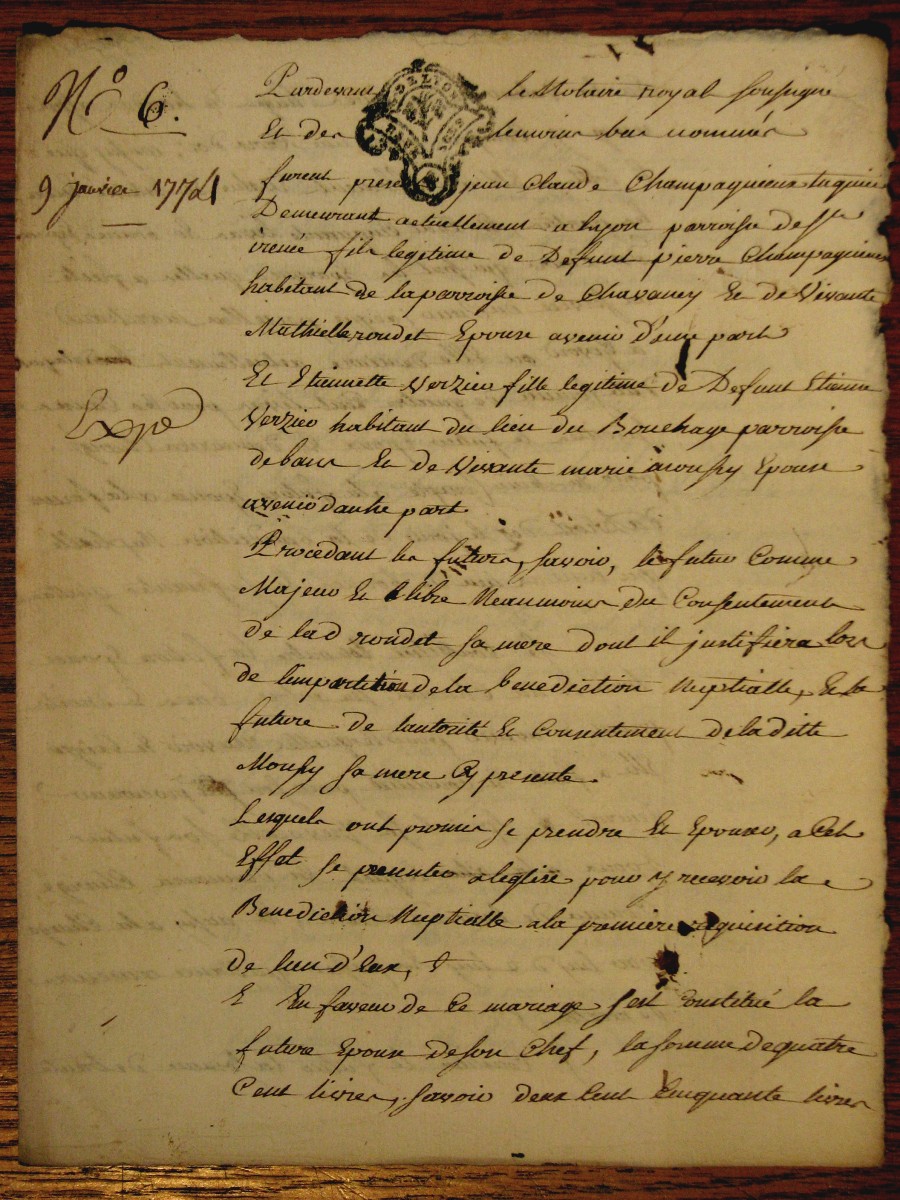 N.º 6.
9 janvier 1774
Expé
Pardevant le Notaire royal soussigné
Et des temoins bas nommés
furent presents jean Claude Champagneux
Demeurant actuellement a Lyon parroisse de st
irenée fils legitime de Defunt pierre Champagneux
habitant de la parroisse de Chavaney Et de Vivante
Mathielle roudet Epoux avenir D'une part
Et Etiennette Verzier fille legitime de Defunt Etienne
Verzier habitant du lieu du Bouchage parroisse
de bans Et de Vivante marie moussy Epouse
avenir dautre part
Procedant les futurs, savoir, le futur Comme
Majeur Et libre Neanmoins du Consentement
de lad roudet sa mere dont il justifiera lors
de limpartition de la benediction Nuptialle, Et la
future de lautorité Et Consentement de la ditte
Moussy sa mere Cy presente.
Lesquels ont promis se prendre Et Epouser, a Cet
Effet se presenter a leglise pour y recevoir la
Benediction Nuptialle a la premiere requisition
de lun d'Eux,
En faveur de Ce mariage s'est Constitué la
future Epouse de son Chef, la somme de quatre
Cent livres, savoir deux Cent Cinquante livres